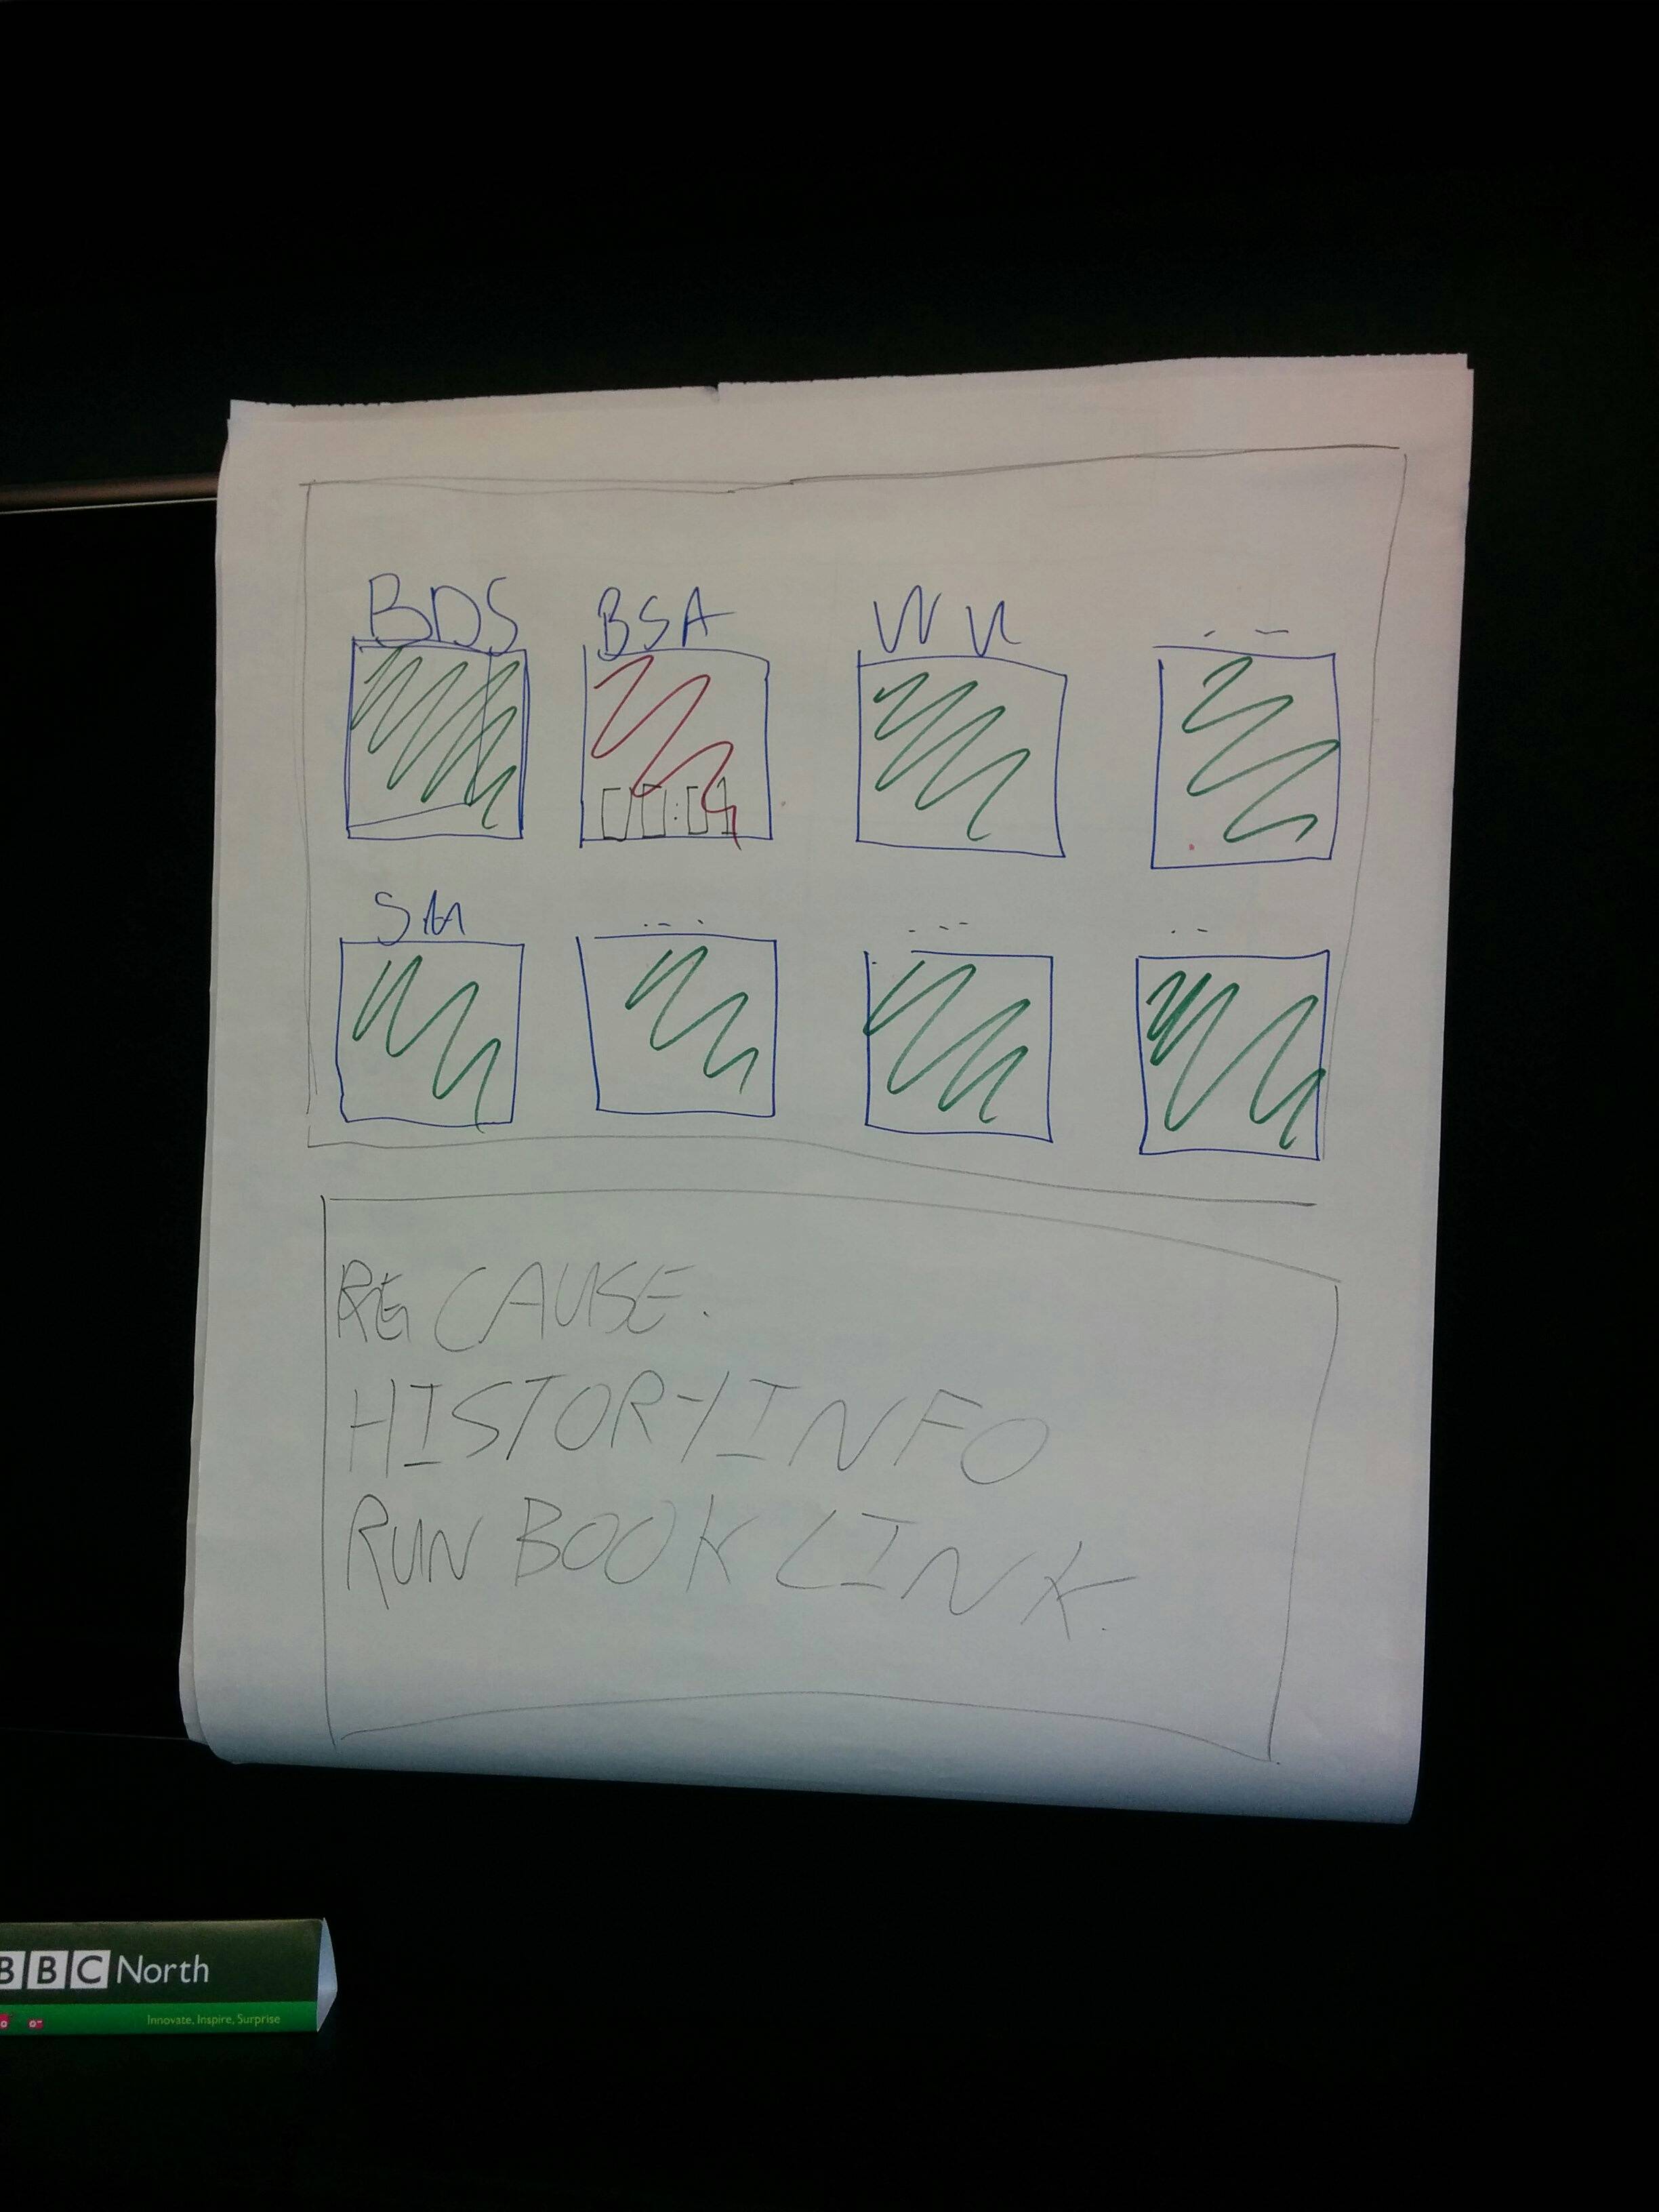 BDS BSA
00:01
SM
CAUSE.
HISTORY INFO
RUN BOOK LINK.
BBC North
Innovate, Inspire, Surprise